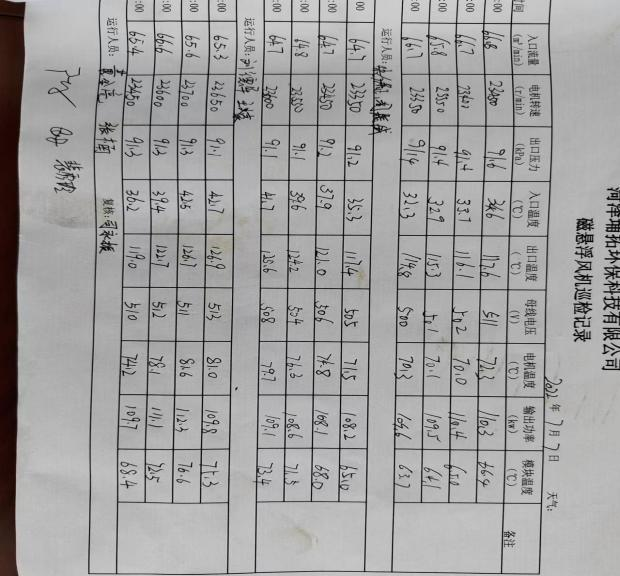 环保科技有限公司
磁悬浮风机巡检记录
2022年7月7日 天气:
时间 入口流量(m³/min) 电机转速(r/min) 出口压力(kPa) 入口温度(℃) 出口温度(℃) 母线电压(V) 电机温度(℃) 输出功率(kw) 模块温度(℃) 备注
:00 66.8 23450 91.6 34.6 117.6 511 72.3 110.3 66.4
:00 66.7 91.4 33.7 116.1 502 70.0 110.4 65.0
:00 65.8 23350 91.4 32.9 115.3 501 70.1 109.5 64.1
:00 66.7 23350 91.4 32.3 114.8 500 70.3 109.6 63.7
运行人员:
:00 64.7 23350 91.2 35.3 117.4 505 71.5 108.2 65.0
:00 64.7 23450 91.2 37.9 121.0 506 74.8 108.1 68.0
:00 64.8 23550 91.1 39.6 124.2 504 76.3 108.6 71.3
:00 64.7 23600 91.1 41.7 125.6 508 79.7 109.1 73.4
运行人员:
:00 65.3 23650 91.1 42.7 126.9 513 81.0 109.8
:00 65.6 23700 91.3 42.5 126.7 511 81.6 112.3 76.6
:00 66.6 23600 91.3 39.4 122.7 512 78.1 111.1 72.5
:00 65.4 23450 91.3 36.2 119.0 510 74.2 109.7 68.4
运行人员: 复核: